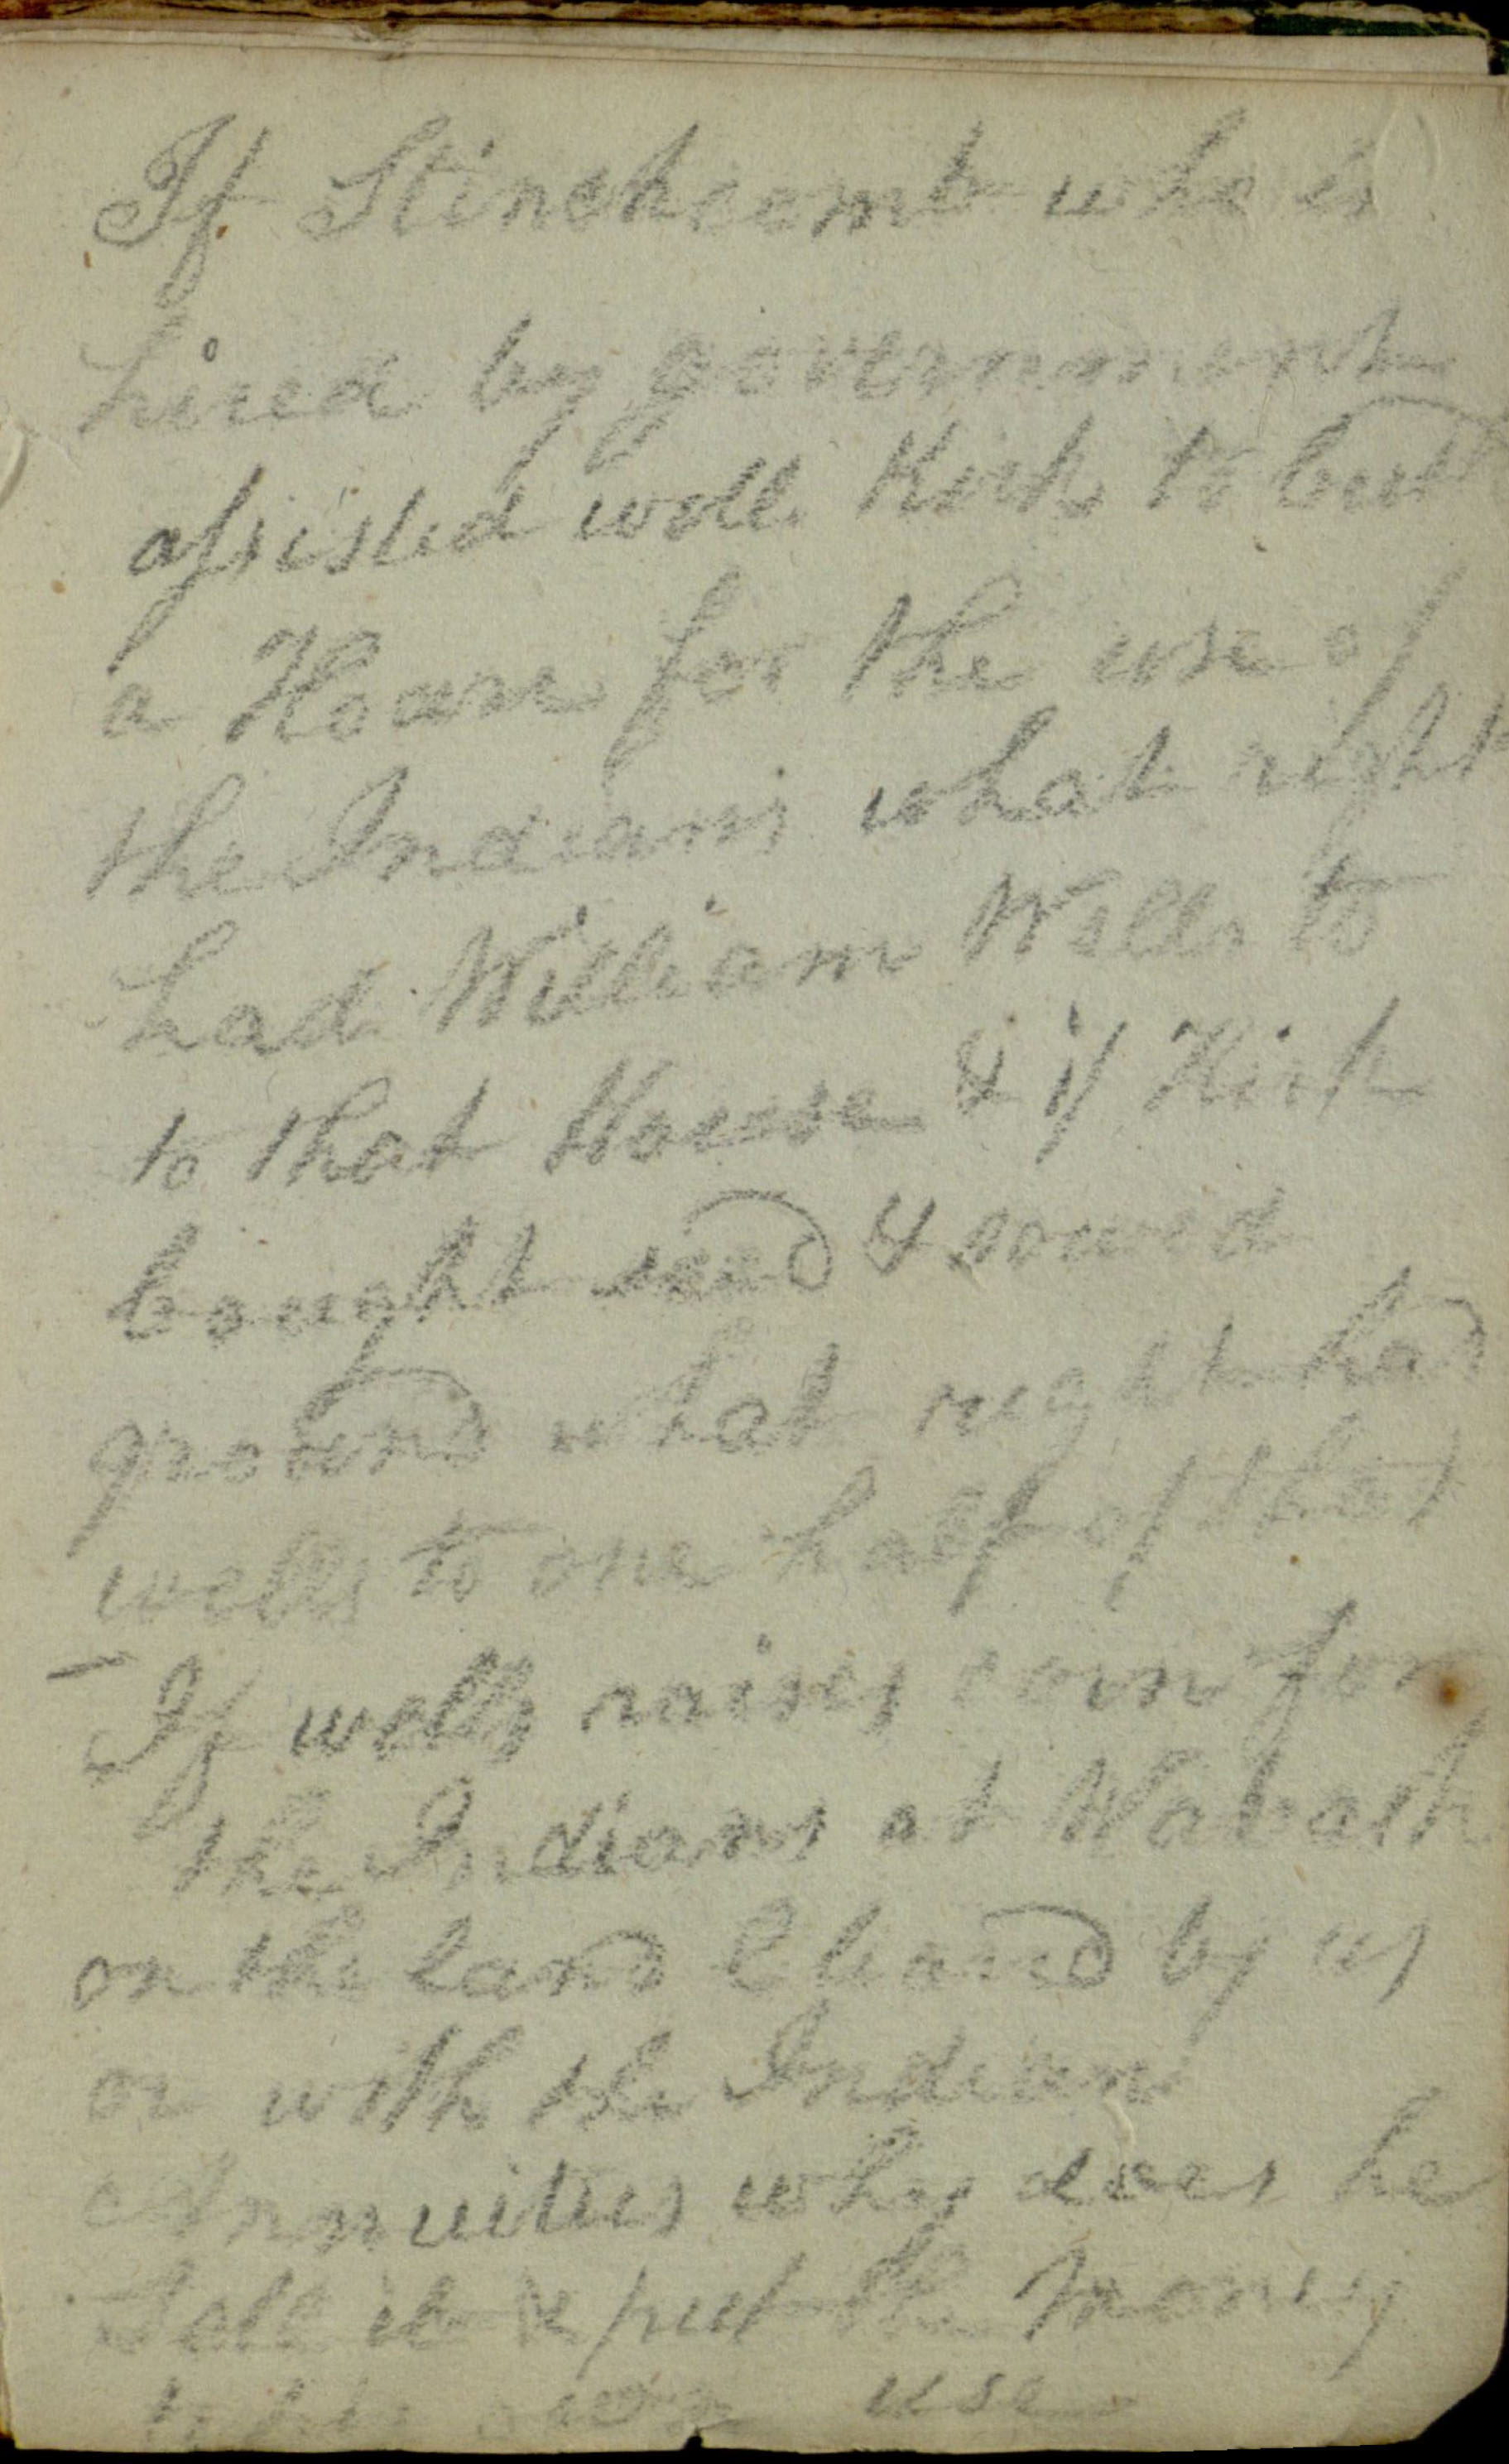 If Stinchcomb who is
hired by government
assisted will Kirk to but
a House for the use of
the Indians what right
had William Wells to
to that House & if Kirk
bought seed & sowed
ground what right had
wells to one half of that
If wells raises corn for
the Indians at Wabash
on the land Cleared by us
or with the Indian
Annuities why does he
Sell it & put the money
to his own use